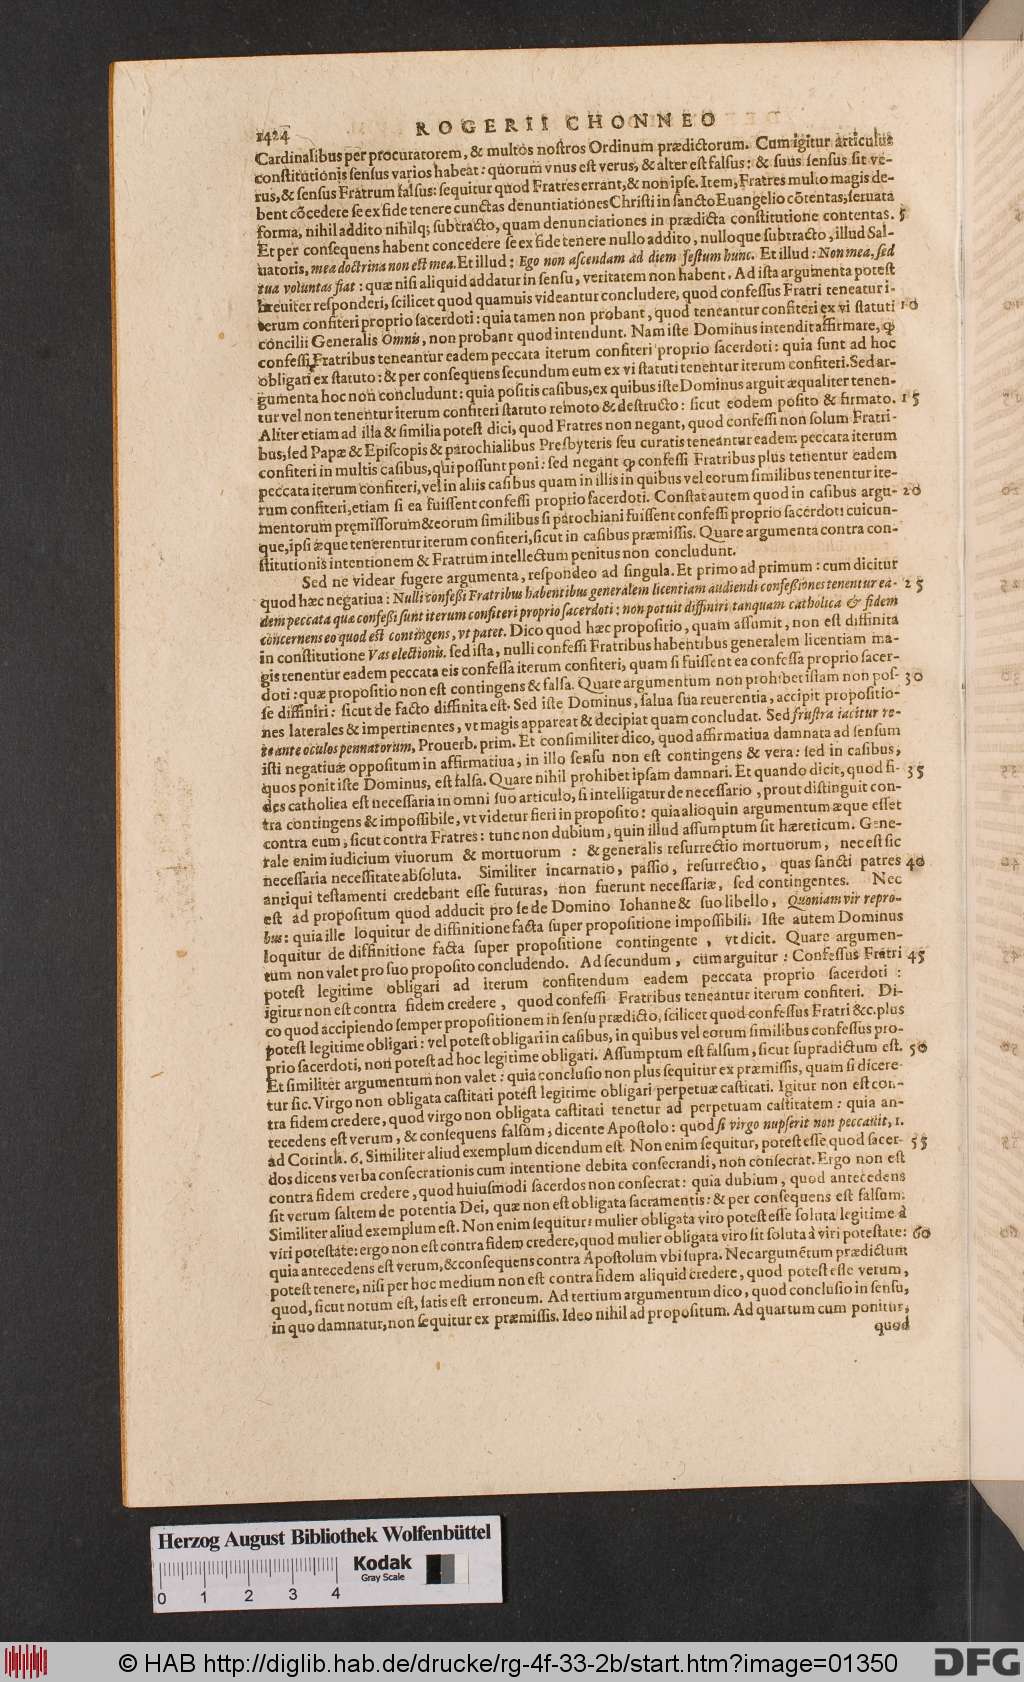 1424 ROGERII CHONNEO
Cardinalibus per procuratorem, & multos nostros Ordinum prædictorum. Cum igitur articulus
constitutionis sensus varios habeat: quorum vnus est verus, & alter est falsus: & suus sensus sit ve-
rus, & sensus Fratrum falsus: sequitur quod Fratres errant, & non ipse. Item, Fratres multo magis de-
bent cōcedere se ex fide tenere cunctas denuntiationes Christi in sancto Euangelio cōtentas, seruata
forma, nihil addito nihilq; subtracto, quam denunciationes in prædicta constitutione contentas. 5
Et per consequens habent concedere se ex fide tenere nullo addito, nulloque subtracto, illud Sal-
uatoris, mea doctrina non est mea. Et illud: Ego non ascendam ad diem festum hunc. Et illud: Non mea, sed
tua voluntas fiat: quæ nisi aliquid addatur in sensu, veritatem non habent. Ad ista argumenta potest
breuiter responderi, scilicet quod quamuis videantur concludere, quod confessus Fratri teneatur i-
terum confiteri proprio sacerdoti: quia tamen non probant, quod teneantur confiteri ex vi statuti 10
concilii Generalis Omnis, non probant quod intendunt. Nam iste Dominus intendit affirmare, ꝙ
confessi Fratribus teneantur eadem peccata iterum confiteri proprio sacerdoti: quia sunt ad hoc
obligati ex statuto: & per consequens secundum eum ex vi statuti tenentur iterum confiteri. Sed ar-
gumenta hoc non concludunt: quia positis casibus, ex quibus iste Dominus arguit æqualiter tenen-
tur vel non tenentur iterum confiteri statuto remoto & destructo: sicut eodem posito & firmato. 15
Aliter etiam ad illa & similia potest dici, quod Fratres non negant, quod confessi non solum Fratri-
bus, sed Papæ & Episcopis & parochialibus Presbyteris seu curatis teneantur eadem peccata iterum
confiteri in multis casibus, qui possunt poni: sed negant ꝙ confessi Fratribus plus tenentur eadem
peccata iterum confiteri, vel in aliis casibus quam in illis in quibus vel eorum similibus tenentur ite-
rum confiteri, etiam si ea fuissent confessi proprio sacerdoti. Constat autem quod in casibus argu- 20
mentorum pręmissorum & eorum similibus si parochiani fuissent confessi proprio sacerdoti cuicun-
que, ipsi æque tenerentur iterum confiteri, sicut in casibus præmissis. Quare argumenta contra con-
stitutionis intentionem & Fratrum intellectum penitus non concludunt.
Sed ne videar fugere argumenta, respondeo ad singula. Et primo ad primum: cum dicitur
quod hæc negatiua: Nulli confessi Fratribus habentibus generalem licentiam audiendi confessiones tenentur ea- 25
dem peccata quæ confessi sunt iterum confiteri proprio sacerdoti: non potuit diffiniri tanquam catholica & fidem
concernens eo quod est contingens, vt patet. Dico quod hæc propositio, quam assumit, non est diffinita
in constitutione Vas electionis. sed ista, nulli confessi Fratribus habentibus generalem licentiam ma-
gis tenentur eadem peccata eis confessa iterum confiteri, quam si fuissent ea confessa proprio sacer-
doti: quæ propositio non est contingens & falsa. Quare argumentum non prohibet istam non pos- 30
se diffiniri: sicut de facto diffinita est. Sed iste Dominus, salua sua reuerentia, accipit propositio-
nes laterales & impertinentes, vt magis appareat & decipiat quam concludat. Sed frustra iacitur re-
te ante oculos pennatorum, Prouerb. prim. Et consimiliter dico, quod affirmatiua damnata ad sensum
isti negatiuæ oppositum in affirmatiua, in illo sensu non est contingens & vera: sed in casibus,
quos ponit iste Dominus, est falsa. Quare nihil prohibet ipsam damnari. Et quando dicit, quod fi- 35
des catholica est necessaria in omni suo articulo, si intelligatur de necessario, prout distinguit con-
tra contingens & impossibile, vt videtur fieri in proposito: quia alioquin argumentum æque esset
contra eum, sicut contra Fratres: tunc non dubium, quin illud assumptum sit hæreticum. Gene-
rale enim iudicium viuorum & mortuorum: & generalis resurrectio mortuorum, nec est sic
necessaria necessitate absoluta. Similiter incarnatio, passio, resurrectio, quas sancti patres 40
antiqui testamenti credebant esse futuras, non fuerunt necessariæ, sed contingentes. Nec
est ad propositum quod adducit pro se de Domino Iohanne & suo libello, Quoniam vir repro-
bus: quia ille loquitur de diffinitione facta super propositione impossibili. Iste autem Dominus
loquitur de diffinitione facta super propositione contingente, vt dicit. Quare argumen-
tum non valet pro suo proposito concludendo. Ad secundum, cum arguitur: Confessus Fratri 45
potest legitime obligari ad iterum confitendum eadem peccata proprio sacerdoti:
igitur non est contra fidem credere, quod confessi Fratribus teneantur iterum confiteri. Di-
co quod accipiendo semper propositionem in sensu prædicto, scilicet quod confessus Fratri &c. plus
potest legitime obligari: vel potest obligari in casibus, in quibus vel eorum similibus confessus pro-
prio sacerdoti, non potest ad hoc legitime obligati. Assumptum est falsum, sicut supradictum est. 50
Et similiter argumentum non valet: quia conclusio non plus sequitur ex præmissis, quam si dicere-
tur sic. Virgo non obligata castitati potest legitime obligari perpetuæ castitati. Igitur non est con-
tra fidem credere, quod virgo non obligata castitati tenetur ad perpetuam castitatem: quia an-
tecedens est verum, & consequens falsum, dicente Apostolo: quod si virgo nupserit non peccauit, 1.
ad Corinth. 6. Similiter aliud exemplum dicendum est. Non enim sequitur, potest esse quod sacer- 55
dos dicens verba consecrationis cum intentione debita consecrandi, non consecrat. Ergo non est
contra fidem credere, quod huiusmodi sacerdos non consecrat: quia dubium, quod antecedens
sit verum saltem de potentia Dei, quæ non est obligata sacramentis: & per consequens est falsum.
Similiter aliud exemplum est. Non enim sequitur: mulier obligata viro potest esse soluta legitime à
viri potestate: ergo non est contra fidem credere, quod mulier obligata viro sit soluta à viri potestate: 60
quia antecedens est verum, & consequens contra Apostolum vbi supra. Nec argumētum prædictum
potest tenere, nisi per hoc medium non est contra fidem aliquid credere, quod potest esse verum,
quod, sicut notum est, satis est erroneum. Ad tertium argumentum dico, quod conclusio in sensu,
in quo damnatur, non sequitur ex præmissis. Ideo nihil ad propositum. Ad quartum cum ponitur,
quod
Herzog August Bibliothek Wolfenbüttel
Kodak
Gray Scale
0 1 2 3 4
© HAB http://diglib.hab.de/drucke/rg-4f-33-2b/start.htm?image=01350
DFG